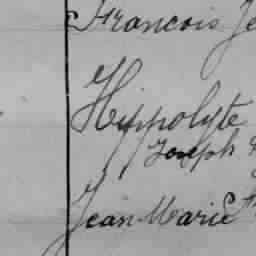 Francois Je
Hippolyte
Joseph
Jean Marie